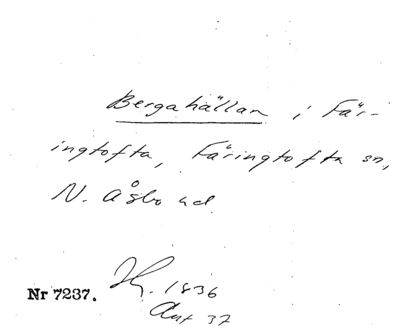 Bergahällan i Fär-
ingtofta, Färingtofta sn,
N. Åsbo hd
Nr 7237. 1836
Ant 37